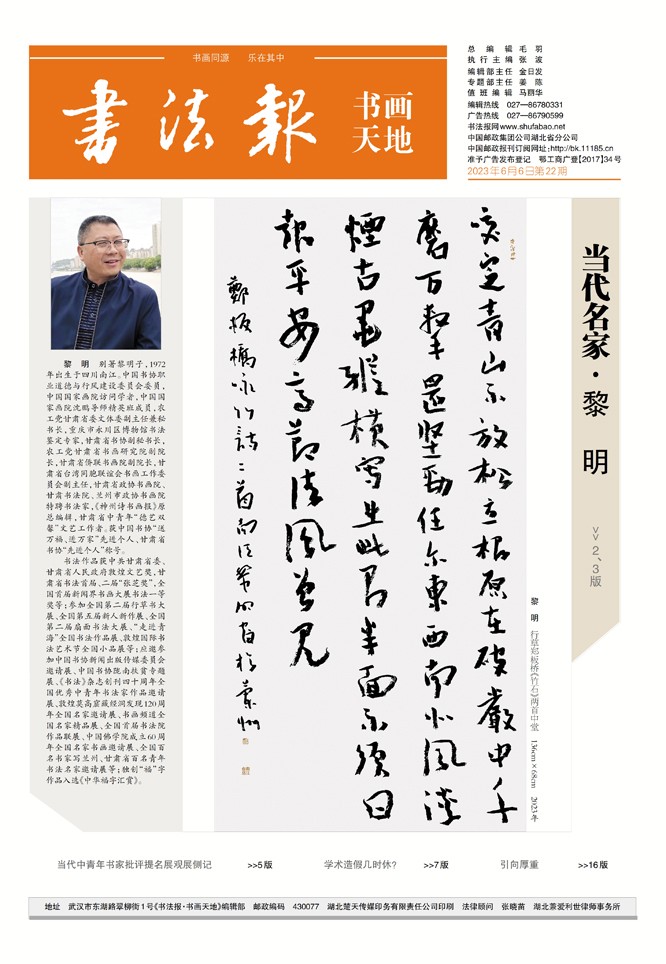 书画同源 乐在其中
書法報
书画
天地
总编辑 毛羽
执行主编 张波
编辑部主任 金日发
专题部主任 姜陈
值班编辑 马丽华
编辑热线 027—86780331
广告热线 027—86790599
书法报网www.shufabao.net
中国邮政集团公司湖北省分公司
中国邮政报刊订阅网址:http://bk.11185.cn
准予广告发布登记 鄂工商广登【2017】34号
2023年6月6日第22期
当代名家·黎 明
>>2、3版
咬定青山不放松立根原在破巖中千
磨万擊還堅勁任尔東西南北風淡
煙古墨縱横写出此君半面不須日
報平安高節清風曾見
鄭板橋咏竹詩二首
黎 明 行草郑板桥《竹石》两首中堂 136cm×68cm 2023年
黎 明 别署黎明子,1972
年出生于四川南江。中国书协职
业道德与行风建设委员会委员,
中国国家画院访问学者,中国国
家画院沈鹏导师精英班成员,农
工党甘肃省委文体委副主任兼秘
书长,重庆市永川区博物馆书法
鉴定专家,甘肃省书协副秘书长,
农工党甘肃省书画研究院副院
长,甘肃省侨联书画院副院长,甘
肃省台湾同胞联谊会书画工作委
员会副主任,甘肃省政协书画院、
甘肃书法院、兰州市政协书画院
特聘书法家,《神州诗书画报》原
总编辑,甘肃省中青年“德艺双
馨”文艺工作者。获中国书协“送
万福、进万家”先进个人、甘肃省
书协“先进个人”称号。
书法作品获中共甘肃省委、
甘肃省人民政府敦煌文艺奖,甘
肃省书法首届、二届“张芝奖”,全
国首届新闻界书画大展书法一等
奖等;参加全国第二届行草书大
展、全国第五届新人新作展、全国
第二届扇面书法大展、“走进青
海”全国书法作品展、敦煌国际书
法艺术节全国小品展等;应邀参
加中国书协新闻出版传媒委员会
邀请展、中国书协陇南扶贫专题
展、《书法》杂志创刊四十周年全
国优秀中青年书法家作品邀请
展、敦煌莫高窟藏经洞发现120周
年全国名家邀请展、书画频道全
国名家精品展、全国首届书法院
作品联展、中国佛学院成立60周
年全国名家书画邀请展、全国百
名书家写兰州、甘肃省百名青年
书法名家邀请展等;独创“福”字
作品入选《中华福字汇赏》。
当代中青年书家批评提名展观展侧记 >>5版
学术造假几时休? >>7版
引向厚重 >>16版
地址 武汉市东湖路翠柳街1号《书法报·书画天地》编辑部 邮政编码 430077 湖北楚天传媒印务有限责任公司印刷 法律顾问 张晓苗 湖北景爱利世律师事务所